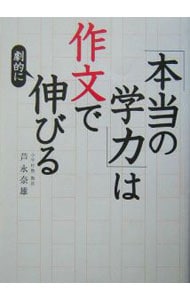 「本当の
学力」は
作文で
劇的に
伸びる
芦永奈雄